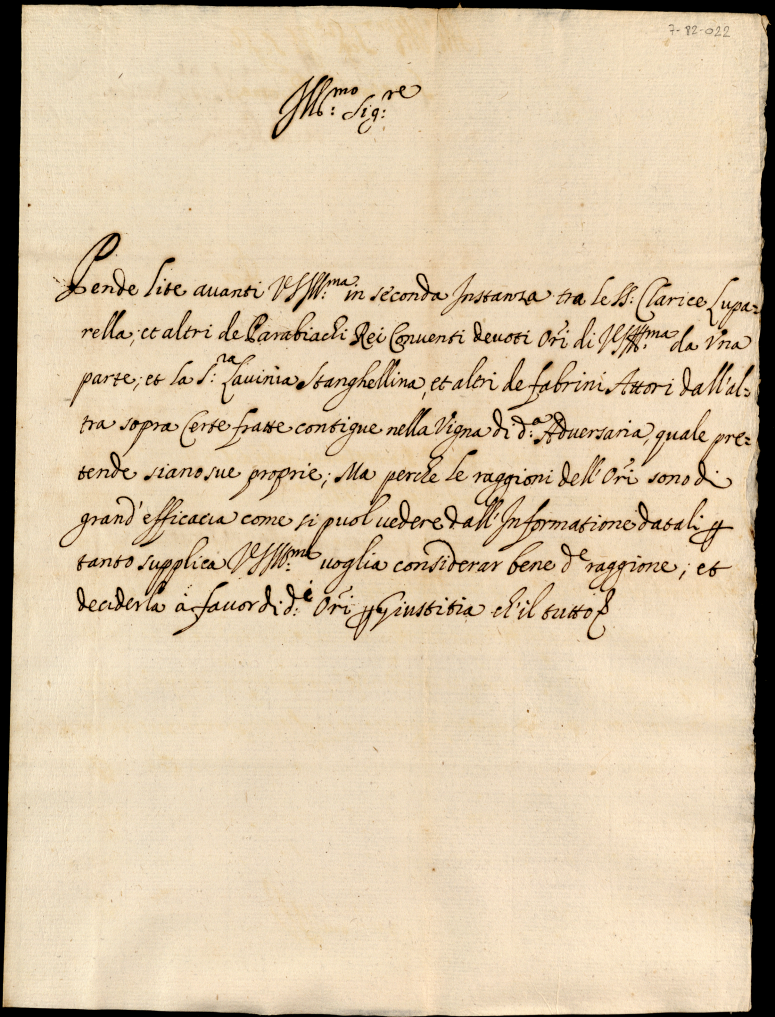 7-82-022
Ill:mo Sig:re
Pende lite avanti VS Ill:ma in seconda Instanza tra le SS: Clarice Lupa=
rella, et altri de Parabiachi Rei Conventi devoti Ori di VS Ill:ma da Una
parte, et la S:ra Lavinia Stanghellina, et altri de fabrini Attori dall'al=
tra sopra Certe fratte contigue nella Vigna di d:a Adversaria, quale pre=
tende siano sue proprie; Ma perche le raggioni dell' Ori sono di
grand' efficacia come si puol vedere dall' Informatione datali p
tanto supplica VS Ill:ma voglia considerar bene de raggione; et
deciderla à favor di d:i Ori p Giustitia ch'il tutto